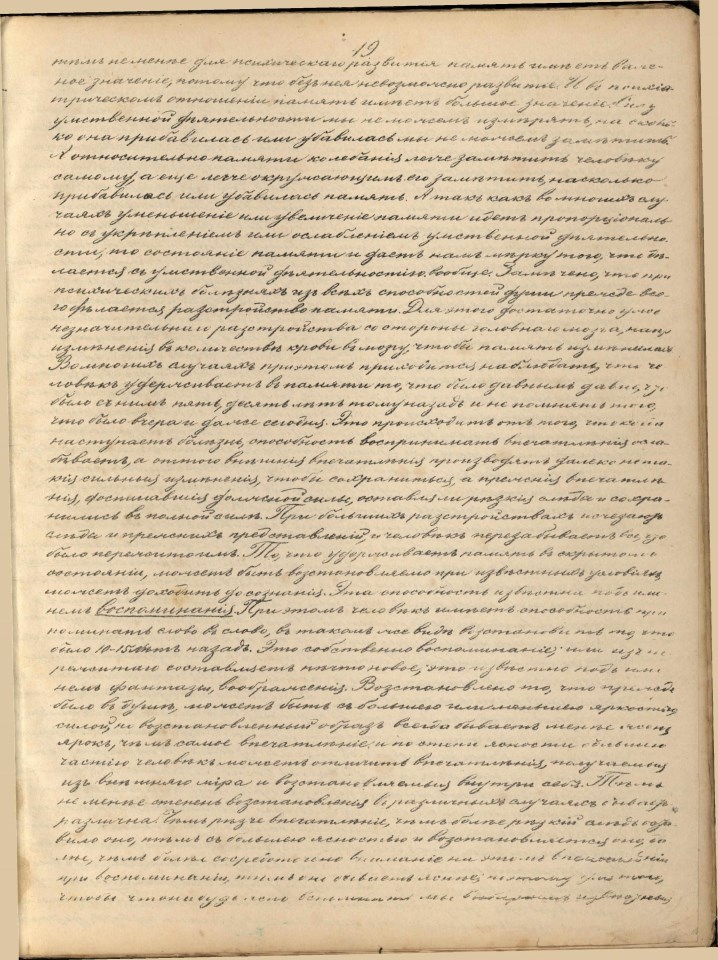 19
тѣмъ не менѣе для психическаго развитія память имѣетъ важ-
ное значеніе, потому что безъ нея невозможно развитіе. И въ психіа-
трическомъ отношеніи память имѣетъ большое значеніе. Силу
умственной дѣятельности мы не можемъ измѣрять, на сколь-
ко она прибавилась или убавилась мы не можемъ замѣтить.
А относительно памяти колебанія легче замѣтить человѣку
самому, а еще легче окружающимъ его замѣтить, насколько
прибавилась или убавилась память. А такъ какъ во многихъ слу-
чаяхъ уменьшеніе или увеличеніе памяти идетъ пропорціональ-
но съ укрѣпленіемъ или ослабленіемъ умственной дѣятельно-
сти, то состояніе памяти и даетъ намъ мѣрку того, что дѣ-
лается съ умственной дѣятельностію вообще. Замѣчено, что при
психическихъ болѣзняхъ изъ всѣхъ способностей души прежде все-
го дѣлается разстройство памяти. Для этого достаточно уже
незначительнаго разстройства со стороны головнаго мозга, напр.
измѣненія въ количествѣ крови въ мозгу, чтобы память измѣнилась.
Во многихъ случаяхъ при этомъ приходится наблюдать, что че-
ловѣкъ удерживаетъ въ памяти то, что было давнымъ давно, что
было съ нимъ пять, десять лѣтъ тому назадъ и не помнитъ того,
что было вчера и даже сегодня. Это происходитъ отъ того, что когда
наступаетъ болѣзнь, способность воспринимать впечатлѣнія осла-
бѣваетъ, а оттого внѣшнія впечатлѣнія производятъ далеко не та-
кія сильныя измѣненія, чтобы сохраниться, а прежнія впечатлѣ-
нія, достигавшія должной силы, оставляли рѣзкія слѣды и сохра-
нились въ полной силѣ. При большихъ разстройствахъ исчезаютъ
слѣды и прежнихъ представленій и человѣкъ перезабываетъ все, что
было пережито имъ. То, что удерживаетъ память въ скрытомъ
состояніи, можетъ быть возстановляемо при извѣстныхъ условіяхъ,
можетъ доходить до сознанія. Эта способность извѣстна подъ име-
немъ воспоминанія. При этомъ человѣкъ имѣетъ способность при-
поминать слово въ слово, въ такомъ же видѣ возстановить то, что
было 10-15 лѣтъ назадъ. Это собственно воспоминаніе; или изъ пе-
режитаго составляетъ нѣчто новое; это извѣстно подъ име-
немъ фантазіи, воображенія. Возстановлено то, что прежде
было въ душѣ, можетъ быть съ большею или меньшею яркостію,
силой, но возстановленный образъ всегда бываетъ менѣе ясенъ,
ярокъ, чѣмъ самое впечатлѣніе; и по степени ясности большею
частію человѣкъ можетъ отличить впечатлѣнія, получаемыя
изъ внѣшняго міра и возстановляемыя внутри себя. Тѣмъ
не менѣе степень возстановленія въ различныхъ случаяхъ очень
различна. Чѣмъ рѣзче впечатлѣніе, чѣмъ болѣе рѣзкій слѣдъ оста-
вило оно, тѣмъ съ большею ясностью и возстановляется оно, да-
лѣе, чѣмъ болѣе сосредоточено вниманіе на этомъ впечатлѣніи
при воспоминаніи, тѣмъ оно бываетъ яснѣе; поэтому для того,
чтобы что нибудь ясно вспомнить мы